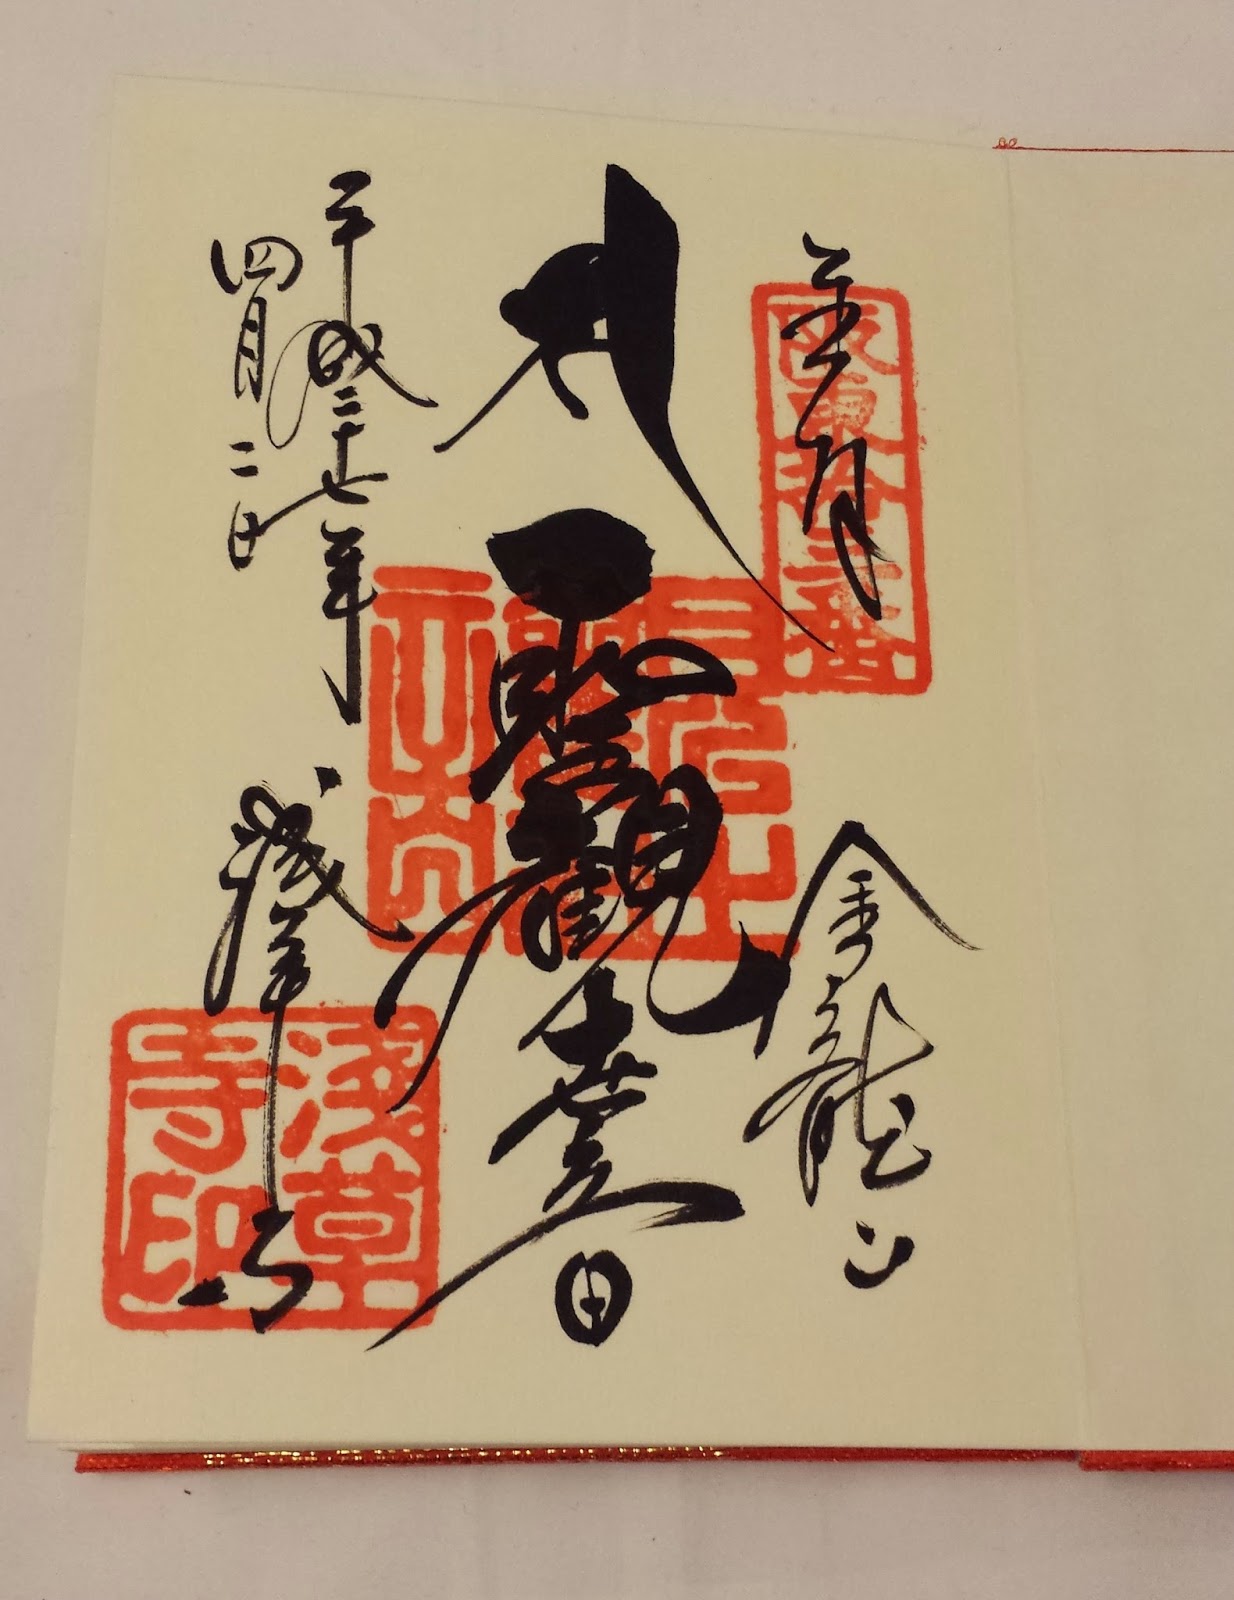 奉拝
阪東拾三番
金龍山
聖観世音
平成二十七年
四月二日
浅草寺
淺草寺印